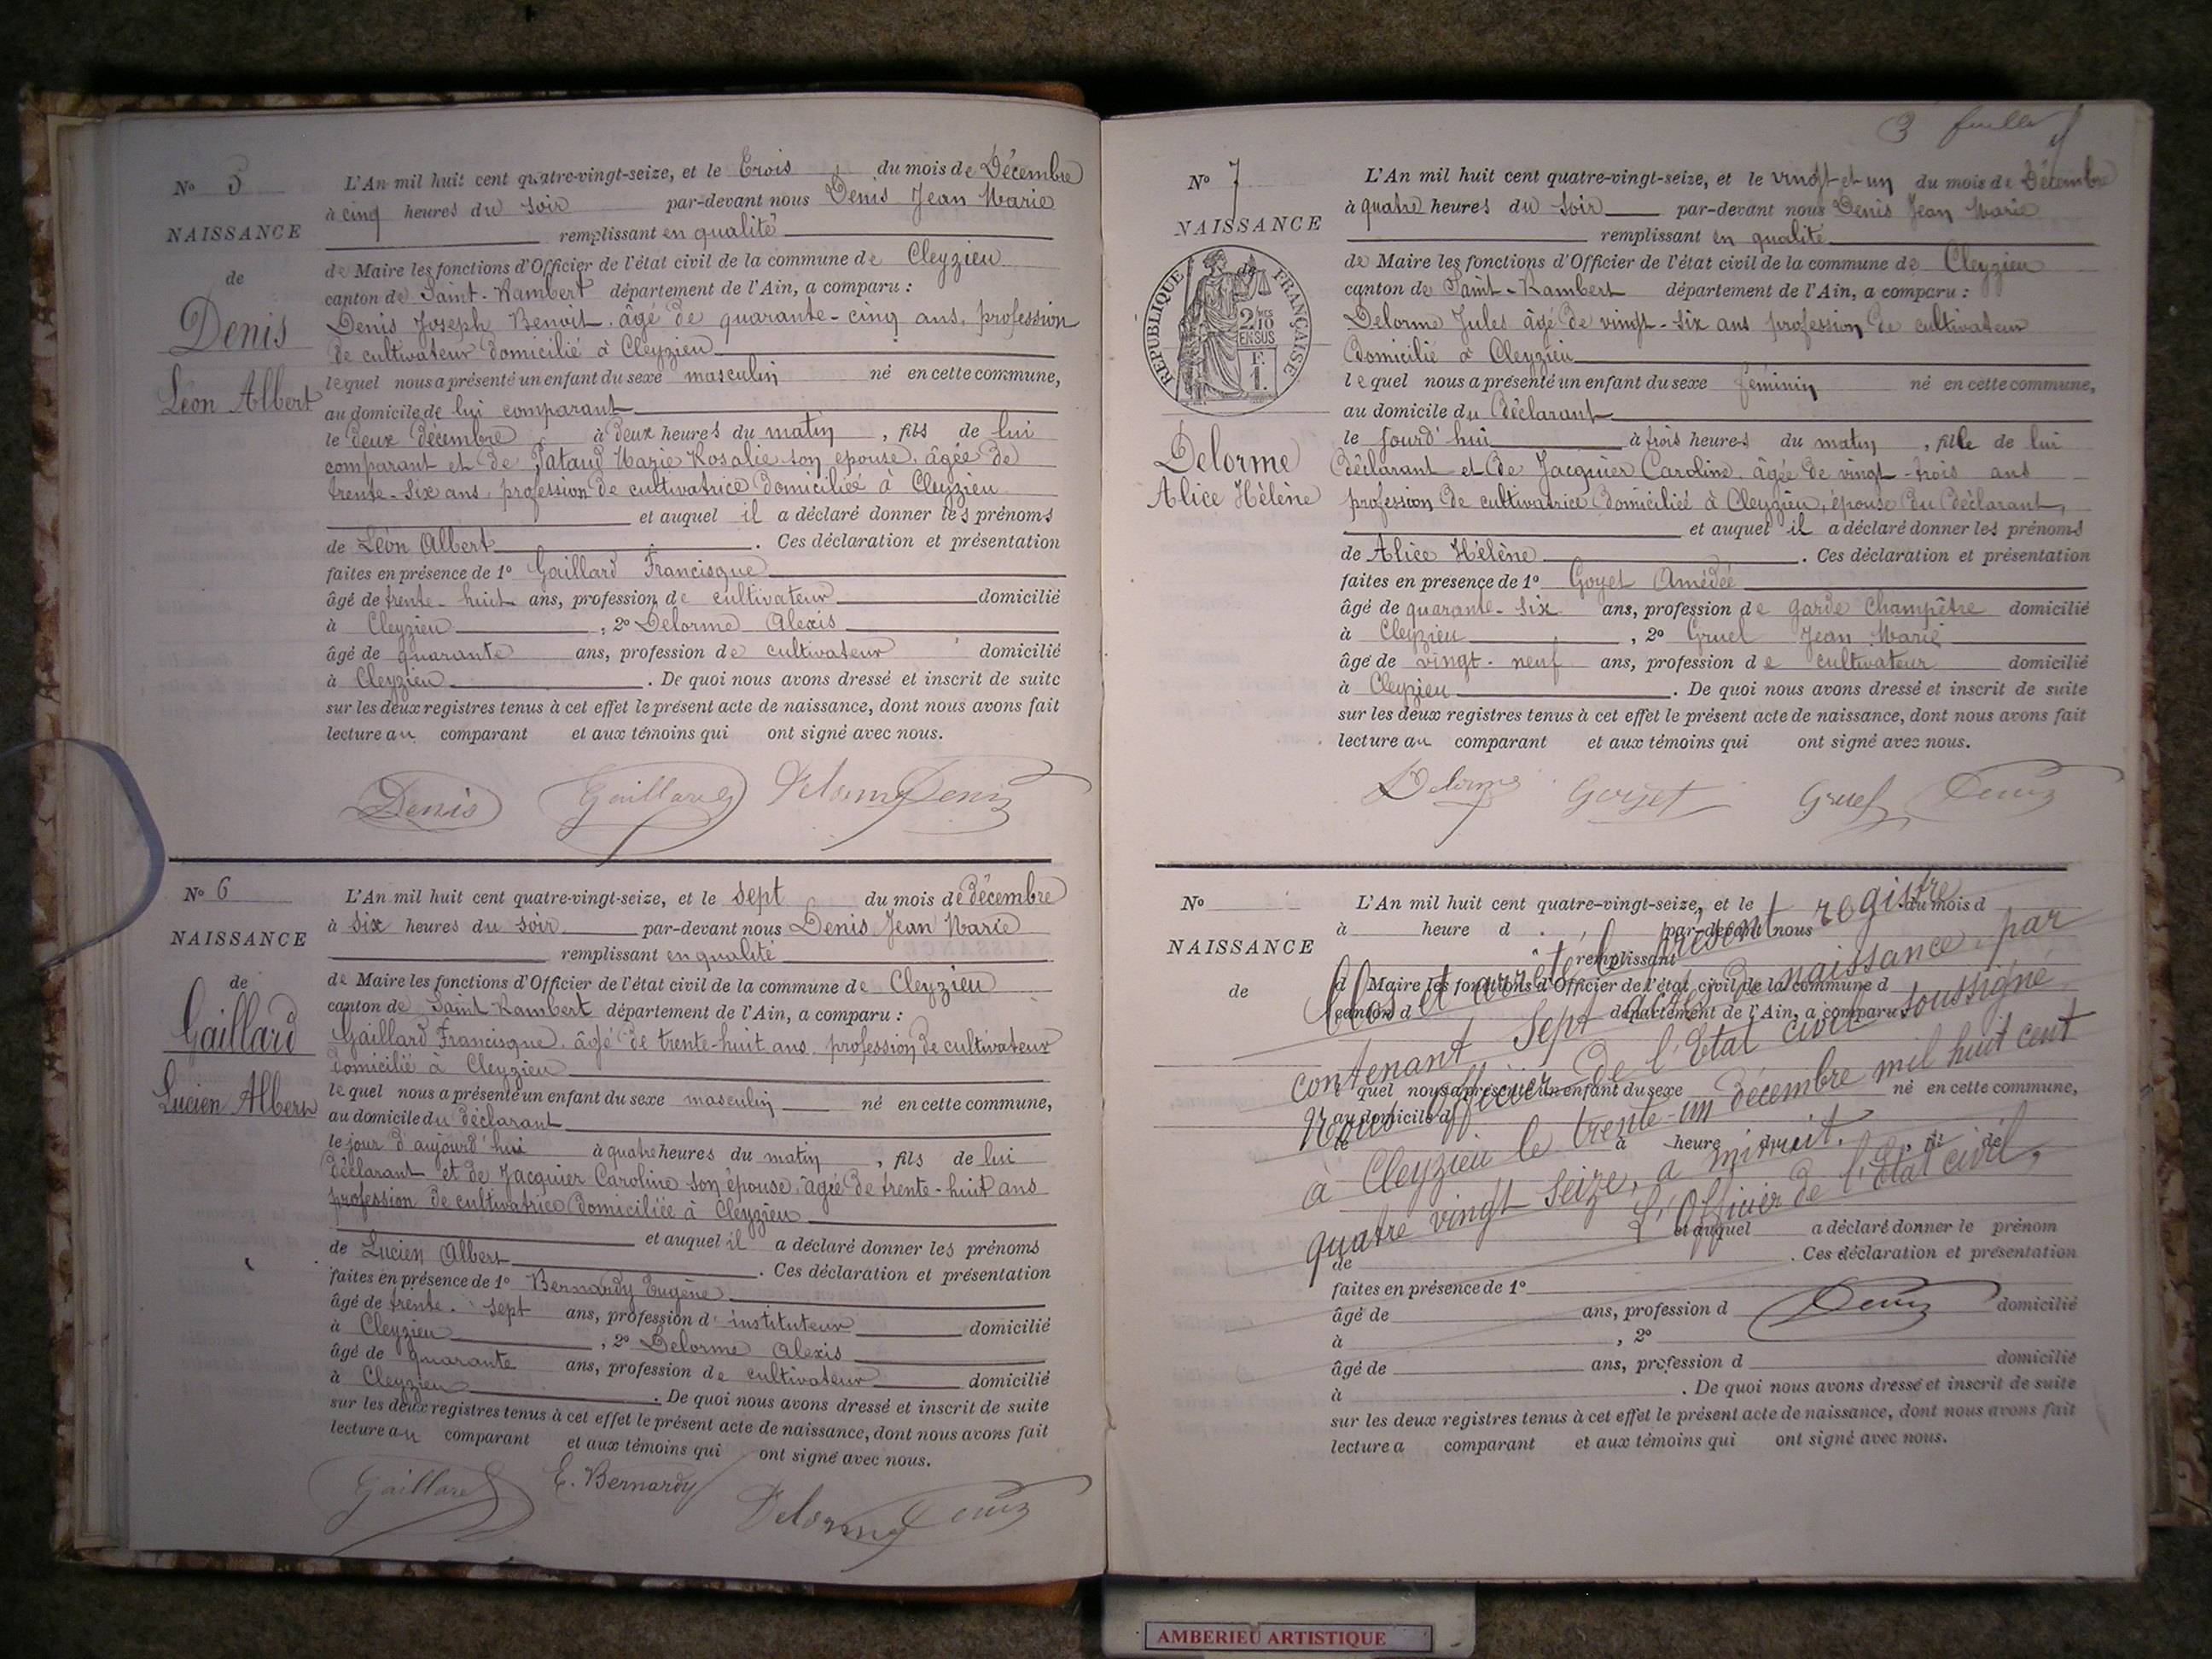 N° 5
NAISSANCE
de
Denis
Léon Albert
L'An mil huit cent quatre-vingt-seize, et le Trois du mois de Décembre
à cinq heures du soir par-devant nous Denis Jean Marie
remplissant en qualité
de Maire les fonctions d'Officier de l'état civil de la commune de Cleyzieu
canton de Saint-Rambert département de l'Ain, a comparu :
Denis Joseph Benoit, âgé de quarante-cinq ans, profession
de cultivateur domicilié à Cleyzieu
lequel nous a présenté un enfant du sexe masculin né en cette commune,
au domicile de lui comparant
le deux décembre à deux heures du matin, fils de lui
comparant et de Pataud Marie Rosalie son épouse, âgée de
trente-six ans, profession de cultivatrice domiciliée à Cleyzieu
et auquel il a déclaré donner les prénoms
de Léon Albert. Ces déclaration et présentation
faites en présence de 1° Gaillard Francisque
âgé de trente-huit ans, profession de cultivateur domicilié
à Cleyzieu, 2° Delorme Alexis
âgé de quarante ans, profession de cultivateur domicilié
à Cleyzieu. De quoi nous avons dressé et inscrit de suite
sur les deux registres tenus à cet effet le présent acte de naissance, dont nous avons fait
lecture au comparant et aux témoins qui ont signé avec nous.
Denis Gaillard Delorme Denis
N° 6
NAISSANCE
de
Gaillard
Lucien Albert
L'An mil huit cent quatre-vingt-seize, et le sept du mois de décembre
à six heures du soir par-devant nous Denis Jean Marie
remplissant en qualité
de Maire les fonctions d'Officier de l'état civil de la commune de Cleyzieu
canton de Saint-Rambert département de l'Ain, a comparu :
Gaillard Francisque, âgé de trente-huit ans, profession de cultivateur
domicilié à Cleyzieu
lequel nous a présenté un enfant du sexe masculin né en cette commune,
au domicile du déclarant
le jour d'aujourd'hui à quatre heures du matin, fils de lui
déclarant et de Jacquier Caroline son épouse, âgée de trente-huit ans
profession de cultivatrice domiciliée à Cleyzieu
et auquel il a déclaré donner les prénoms
de Lucien Albert. Ces déclaration et présentation
faites en présence de 1° Bernardy Eugène
âgé de trente-sept ans, profession d'instituteur domicilié
à Cleyzieu, 2° Delorme Alexis
âgé de quarante ans, profession de cultivateur domicilié
à Cleyzieu. De quoi nous avons dressé et inscrit de suite
sur les deux registres tenus à cet effet le présent acte de naissance, dont nous avons fait
lecture au comparant et aux témoins qui ont signé avec nous.
Gaillard E. Bernardy Delorme Denis
3 feuillet
N° 7
NAISSANCE
de
REPUBLIQUE FRANÇAISE
2 MES
10
EN SUS
F.
1.
Delorme
Alice Hélène
L'An mil huit cent quatre-vingt-seize, et le vingt-et-un du mois de Décembre
à quatre heures du soir par-devant nous Denis Jean Marie
remplissant en qualité
de Maire les fonctions d'Officier de l'état civil de la commune de Cleyzieu
canton de Saint-Rambert département de l'Ain, a comparu :
Delorme Jules âgé de vingt-six ans profession de cultivateur
domicilié à Cleyzieu
lequel nous a présenté un enfant du sexe féminin né en cette commune,
au domicile du déclarant
le jourd'hui à trois heures du matin, fille de lui
déclarant et de Jacquier Caroline, âgée de vingt-trois ans
profession de cultivatrice domiciliée à Cleyzieu, épouse du déclarant,
et auquel il a déclaré donner les prénoms
de Alice Hélène. Ces déclaration et présentation
faites en présence de 1° Goyet Amédée
âgé de quarante-six ans, profession de garde champêtre domicilié
à Cleyzieu, 2° Gruel Jean Marie
âgé de vingt-neuf ans, profession de cultivateur domicilié
à Cleyzieu. De quoi nous avons dressé et inscrit de suite
sur les deux registres tenus à cet effet le présent acte de naissance, dont nous avons fait
lecture au comparant et aux témoins qui ont signé avec nous.
Delorme Goyet Gruel Denis
N°
NAISSANCE
de
L'An mil huit cent quatre-vingt-seize, et le du mois d
à heure d par-devant nous
remplissant
d Maire les fonctions d'Officier de l'état civil de la commune d
canton d département de l'Ain, a comparu
l quel nous a présenté un enfant du sexe né en cette commune,
au domicile d
le à heure du , fi de
et auquel a déclaré donner le prénom
de . Ces déclaration et présentation
faites en présence de 1°
âgé de ans, profession d domicilié
à , 2°
âgé de ans, profession d domicilié
à . De quoi nous avons dressé et inscrit de suite
sur les deux registres tenus à cet effet le présent acte de naissance, dont nous avons fait
lecture a comparant et aux témoins qui ont signé avec nous.
Clos et arrêté le présent registre
contenant sept actes de naissance, par
Nous officier de l'Etat civil soussigné
à Cleyzieu le trente-un décembre mil huit cent
quatre vingt-seize, à minuit.
L'Officier de l'état civil,
Denis
AMBERIEU ARTISTIQUE